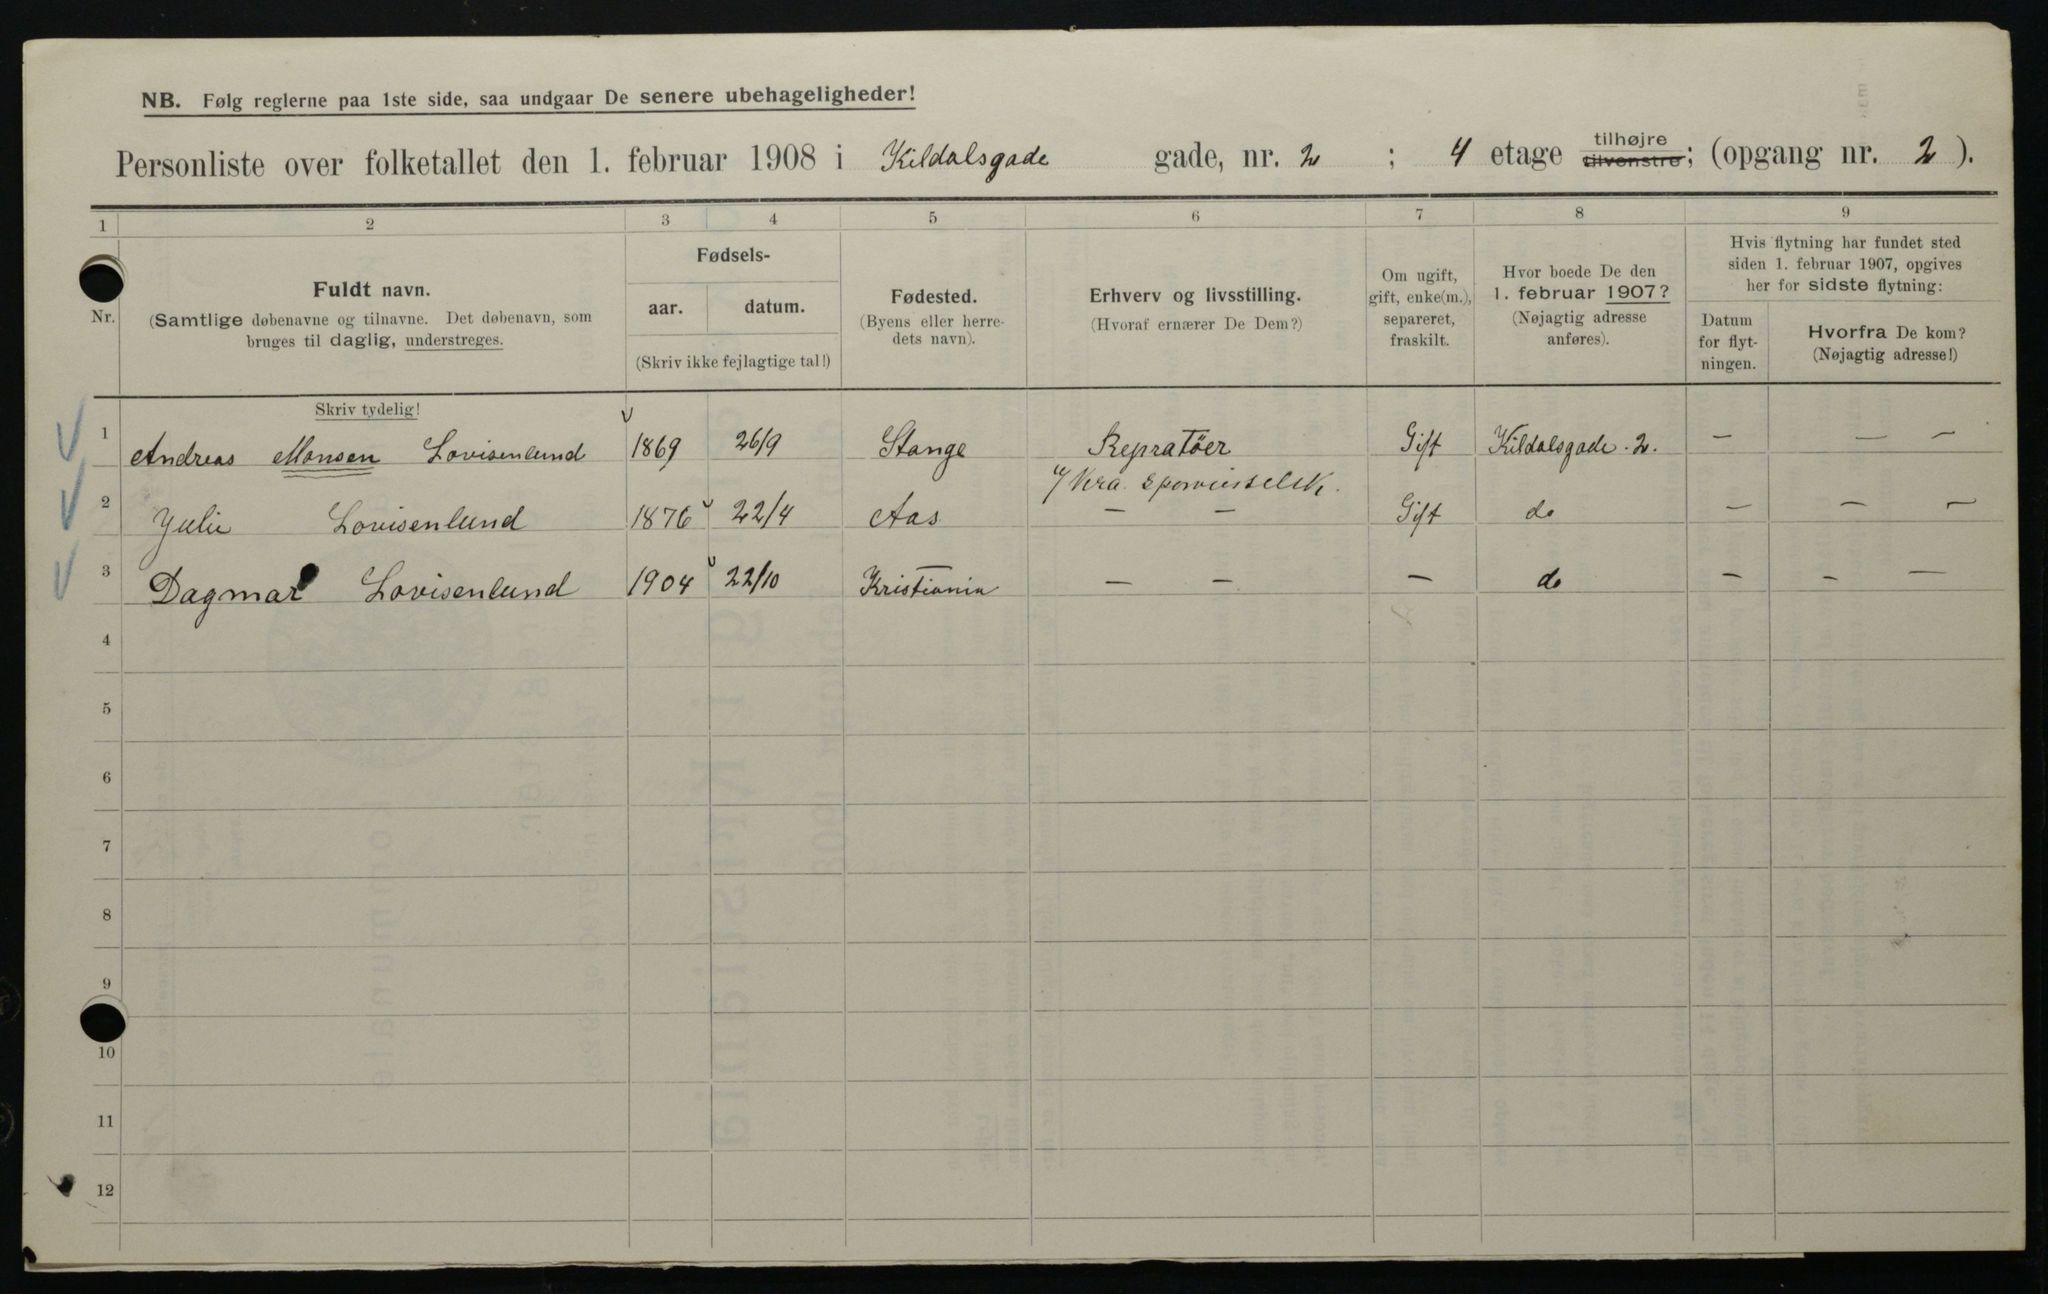 NB. Følg reglerne paa 1ste side, saa undgaar De senere ubehageligheder!
Personliste over folketallet den 1. februar 1908 i Kildalsgade gade, nr. 2 ; 4 etage tilhøjre tilvenstre; (opgang nr. 2 ).
1 2 3 4 5 6 7 8 9
Nr.
Fuldt navn.
(Samtlige døbenavne og tilnavne. Det døbenavn, som
bruges til daglig, understreges.
Skriv tydelig!
Fødsels-
aar. datum.
(Skriv ikke fejlagtige tal!)
Fødested.
(Byens eller herre-
dets navn).
Erhverv og livsstilling.
(Hvoraf ernærer De Dem?)
Om ugift,
gift, enke(m.),
separeret,
fraskilt.
Hvor boede De den
1. februar 1907?
(Nøjagtig adresse
anføres).
Hvis flytning har fundet sted
siden 1. februar 1907, opgives
her for sidste flytning:
Datum
for flyt-
ningen.
Hvorfra De kom?
(Nøjagtig adresse!)
1 Andreas Monsen Lovisenlund 1869 26/9 Stange Repratöer Gift Kildalsgade 2. — — —
v/ Kra.
2 Julie Lovisenlund 1876 22/4 Aas — — Gift do — — —
3 Dagmar Lovisenlund 1904 22/10 Kristiania — — — do — — —
4
5
6
7
8
9
10
11
12